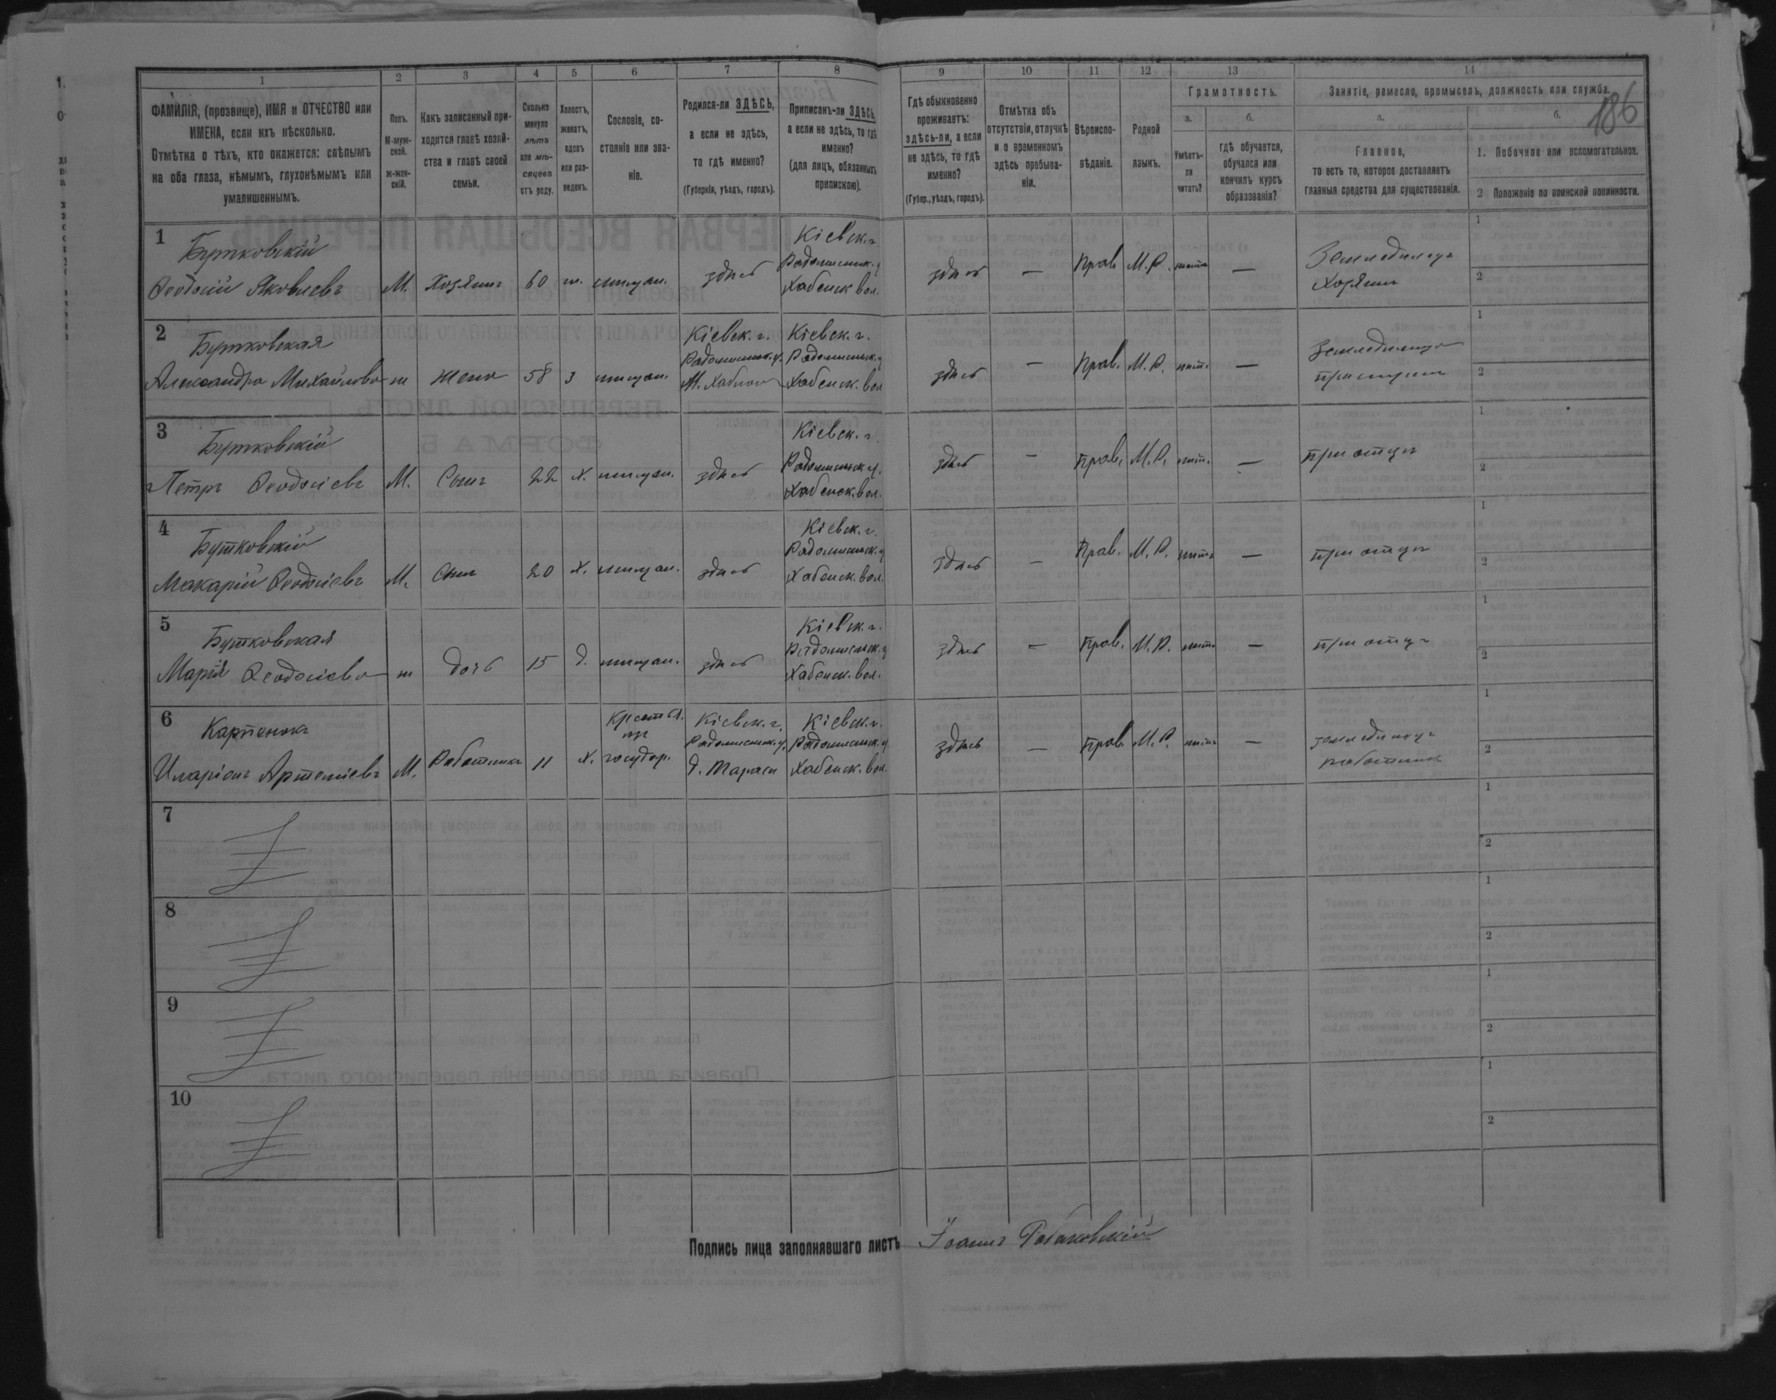 186
1 2 3 4 5 6 7 8 9 10 11 12 13 14
ФАМИЛІЯ, (прозвище), ИМЯ и ОТЧЕСТВО или
ИМЕНА, если ихъ нѣсколько.
Отмѣтка о тѣхъ, кто окажется: слѣпымъ
на оба глаза, нѣмымъ, глухонѣмымъ или
умалишеннымъ.
Полъ.
М-муж-
ской.
ж-жен-
скій.
Какъ записанный при-
ходится главѣ хозяй-
ства и главѣ своей
семьи.
Сколько
минуло
лѣтъ
или мѣ-
сяцевъ
отъ роду.
Холостъ,
женатъ,
вдовъ
или раз-
веденъ.
Сословіе, со-
стояніе или зва-
ніе.
Родился-ли ЗДѢСЬ,
а если не здѣсь,
то гдѣ именно?
(Губернія, уѣздъ, городъ).
Приписанъ-ли ЗДѢСЬ,
а если не здѣсь, то гдѣ
именно?
(для лицъ, обязанныхъ
припискою).
Гдѣ обыкновенно
проживаетъ:
здѣсь-ли, а если
не здѣсь, то гдѣ
именно?
(Губер., уѣздъ, городъ).
Отмѣтка объ
отсутствіи, отлучкѣ
и о временномъ
здѣсь пребыва-
ніи.
Вѣроиспо-
вѣданіе.
Родной
языкъ.
Грамотность.
а.
Умѣетъ-
ли
читать?
б.
гдѣ обучается,
обучался или
кончилъ курсъ
образованія?
Занятіе, ремесло, промыселъ, должность или служба.
а.
Главное,
то есть то, которое доставляетъ
главныя средства для существованія.
б.
1. Побочное или вспомогательное.
2 Положеніе по воинской повинности.
1
Бутковскій
Ѳеодосій Яковлевъ М. Хозяинъ 60 ж. мѣщан. здѣсь
Кіевск. г.
Радомысльск. у.
Хабенск вол.
здѣсь — Прав. М. Р. — Земледѣлецъ
Хозяинъ
1
2
2
Бутковская
Александра Михайлова ж жена 58 з мѣщан.
Кіевск. г.
Радомысльск. у.
М. Хабное
Кіевск. г.
Радомысльск. у
Хабенск. вол
здѣсь — Прав. М. Р. —
1
2
3
Бутковскій
Петръ Ѳеодосіевъ М. Сынъ 22 х. мѣщан. здѣсь
Кіевск. г.
Радомысльск у.
Хабенск. вол.
здѣсь — Прав. М. Р. — при отцѣ
1
2
4
Бутковскій
Макарій Ѳеодосіевъ М. Сынъ 20 х. мѣщан. здѣсь
Кіевск. г.
Радомысльск. у
Хабенск. вол.
здѣсь — Прав. М. Р. — при отцѣ
1
2
5
Бутковская
Марія Ѳеодосіева ж дочь 15 д. мѣщан. здѣсь
Кіевск. г.
Радомысльск. у
Хабенск. вол.
здѣсь — Прав. М. Р. — при отцѣ
1
2
6
Карпенко
Иларіонъ Артеміевъ М. Работникъ 11 х.
Кіевск. г.
Радомысльск. у.
Кіевск. г.
Радомысльск. у
Хабенск. вол.
здѣсь — Прав. М. Р. —
работникъ
1
2
7
1
2
8
1
2
9
1
2
10
1
2
Подпись лица заполнявшаго листъ Іоаннъ